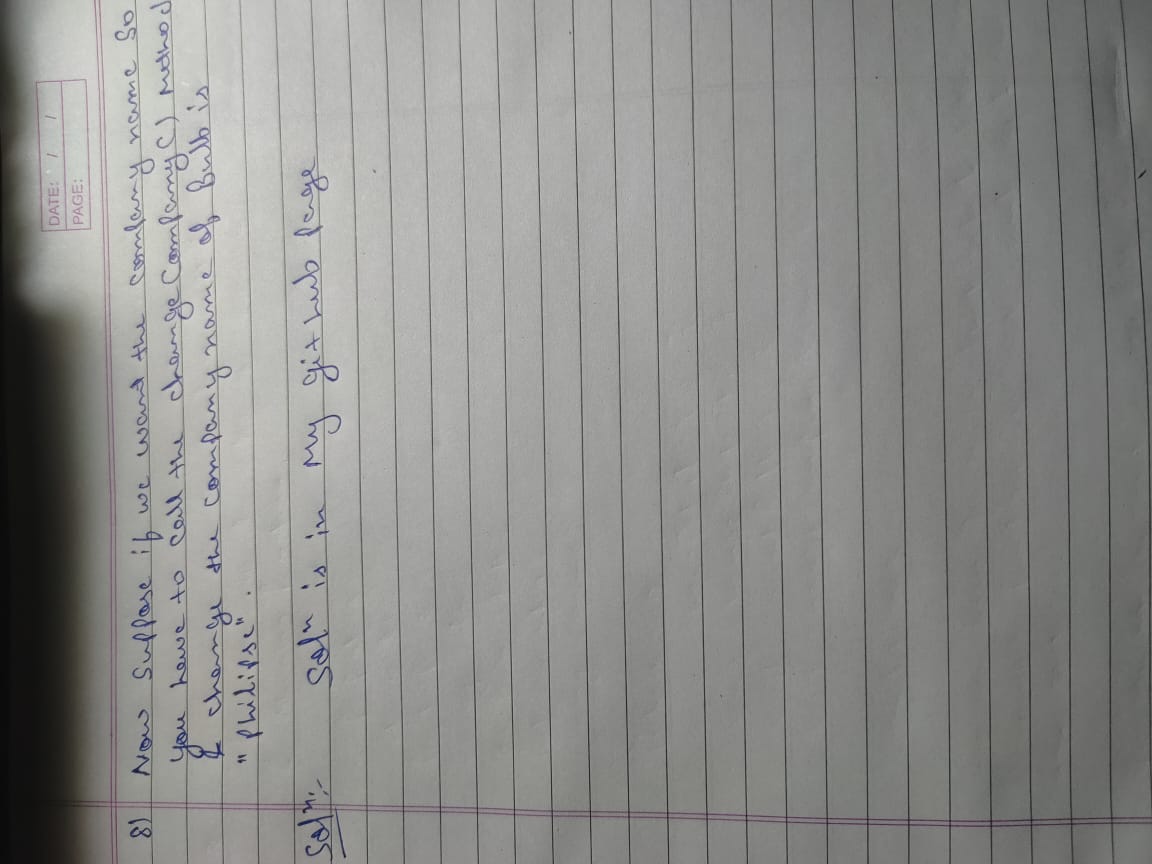 DATE: / /
PAGE:
8) Now Suppose if we want the company name so
you have to call the changeCompany() method
& change the company name of Bulb is
"Philipse".
Solⁿ:- Solⁿ is in my git hub page